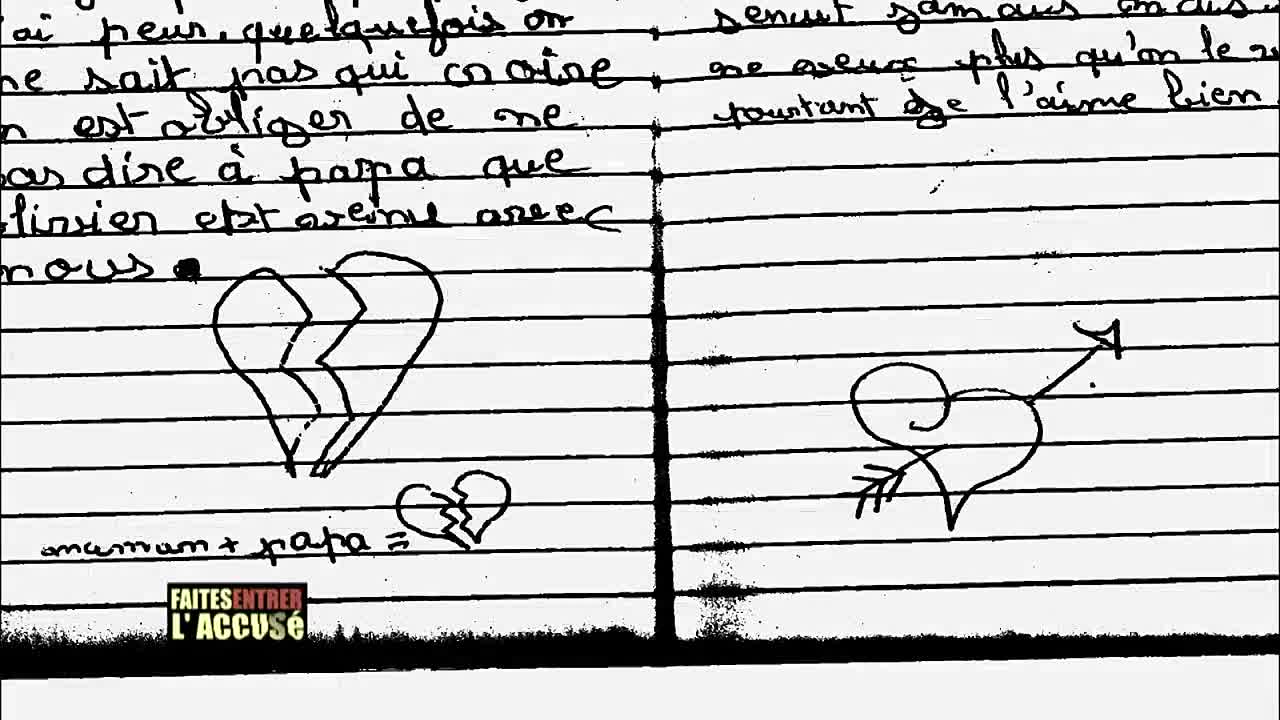 ai peur, quelquefois on
ne sait pas qui croire
n est obliger de ne
pas dire à papa que
livier est venu avec
nous.
maman + papa =
jamais on
ne veux plus qu'on le
pourtant je l'aime bien
FAITES ENTRER
L'ACCUSé